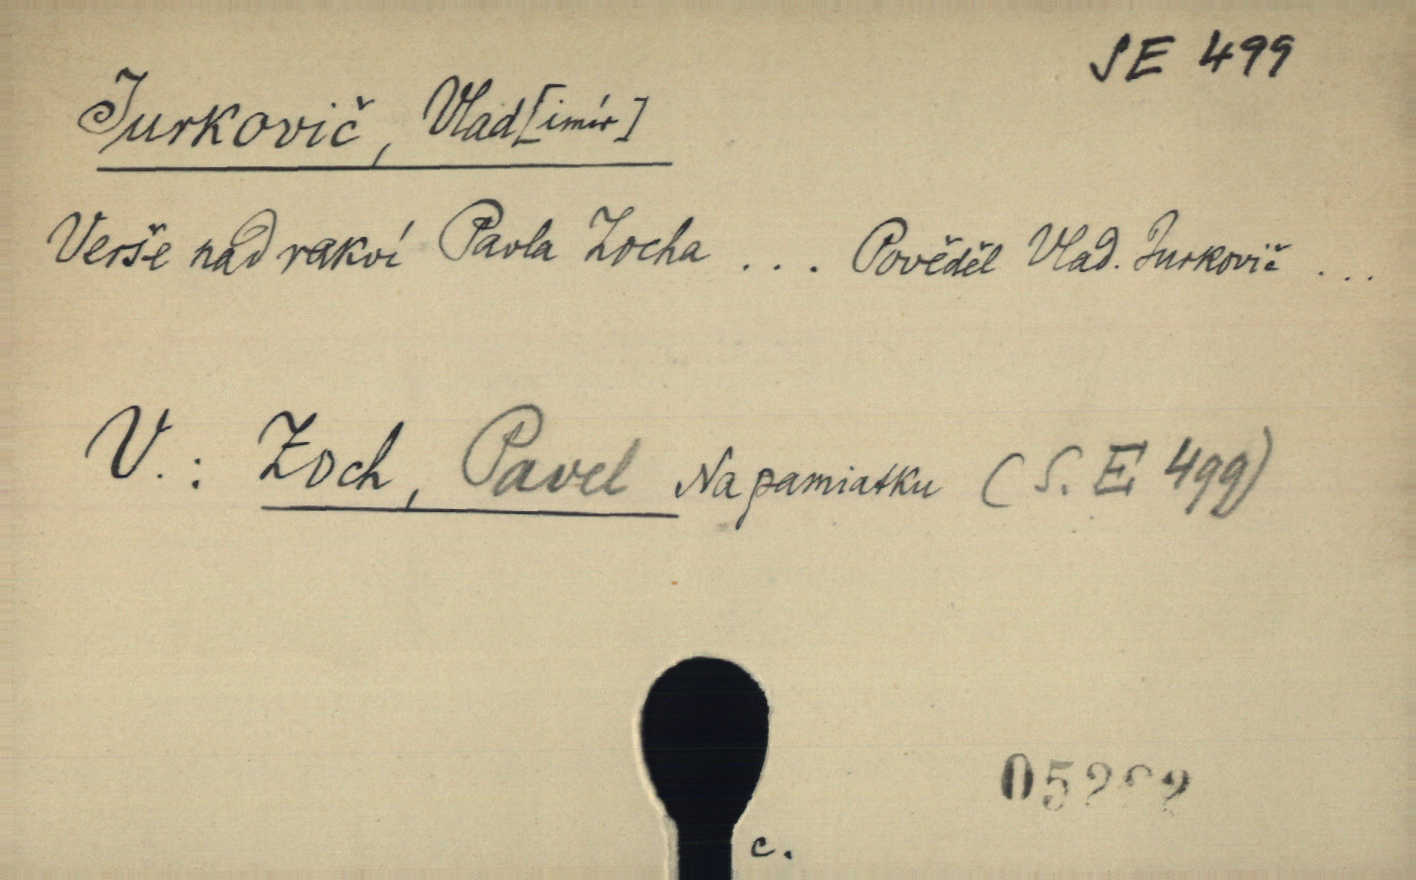 SE 499
Jurkovič, Vlad[imír]
Verše nad rakví Pavla Zocha ... Pověděl Vlad. Jurkovič ...
V.: Zoch, Pavel Na pamiatku (S. E 499)
c.